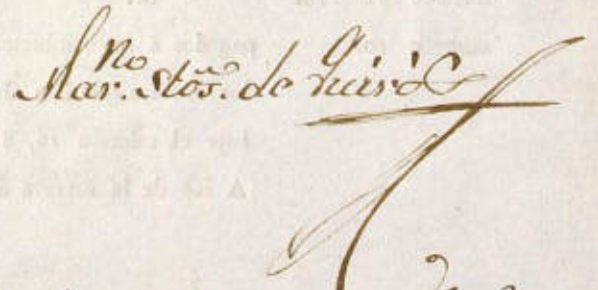 Mar.no Stõs. de Quirós